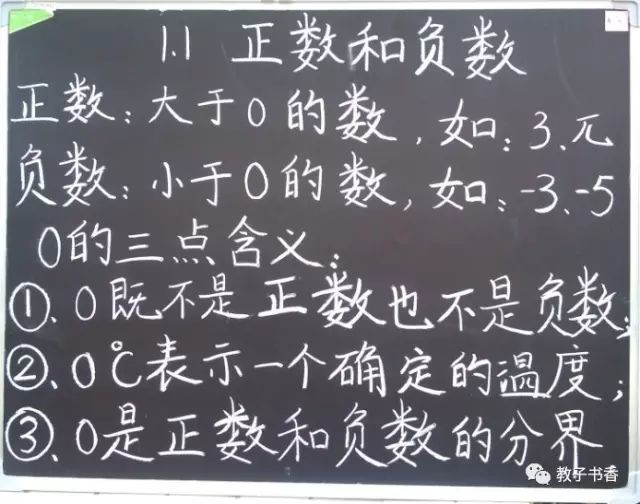 1.1 正数和负数
正数：大于0的数，如：3、π
负数：小于0的数，如：-3、-5
0的三点含义：
①、0既不是正数也不是负数；
②、0℃表示一个确定的温度；
③、0是正数和负数的分界
教子书香